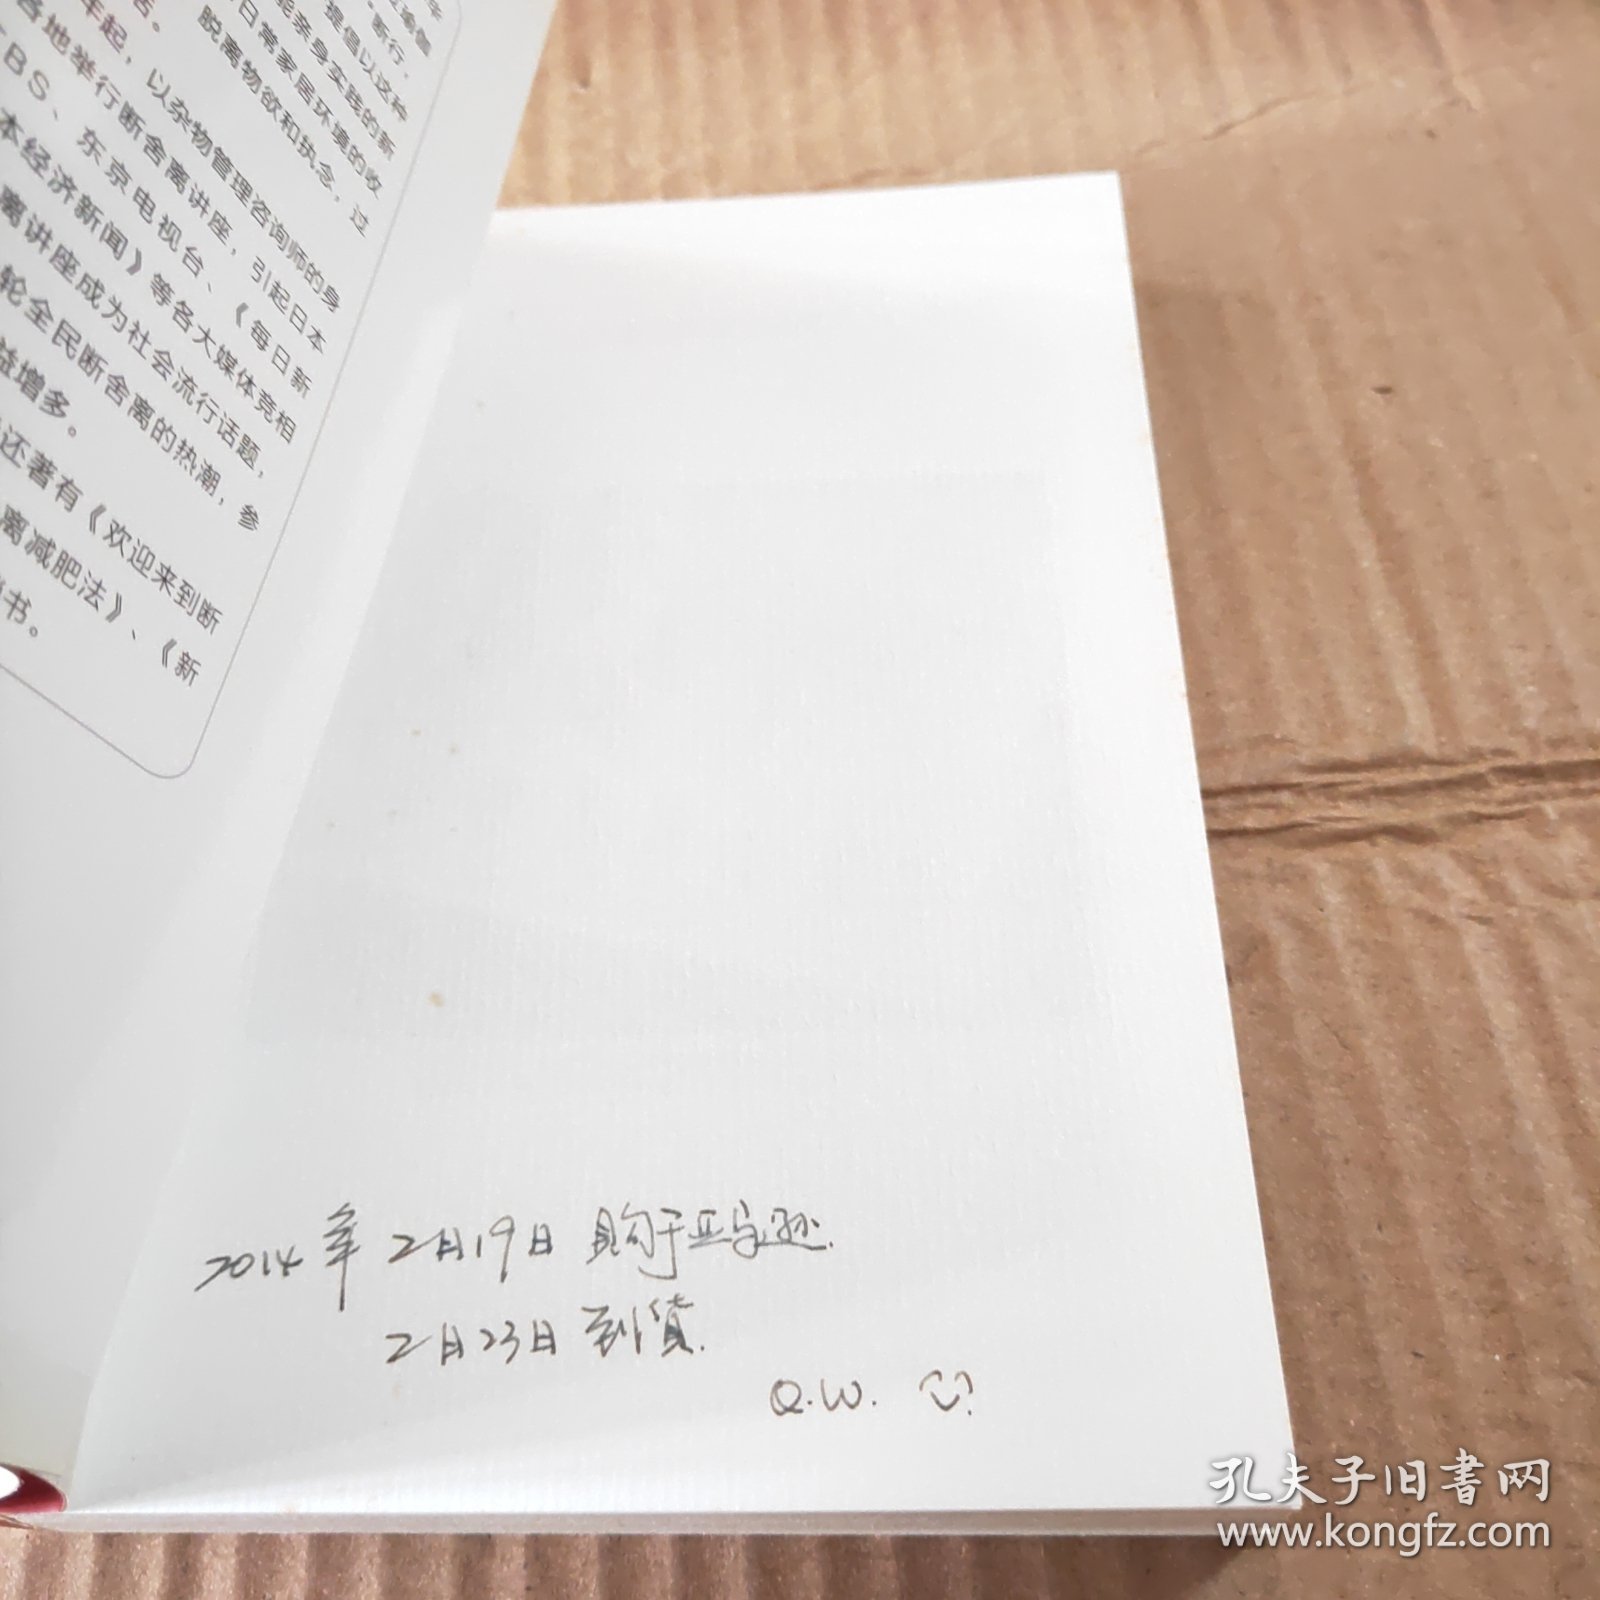 脱离物欲和执念，过
日常家居环境的收
能亲身实践的新
提倡以这种
断行，
年起，以杂物管理咨询师的身
各地举行断舍离讲座，引起日本
TBS、东京电视台、《每日新
本经济新闻》等各大媒体竞相
离讲座成为社会流行话题，
轮全民断舍离的热潮，参
益增多。
还著有《欢迎来到断
离减肥法》、《新
书。
2014年 2月19日 购于亚马逊.
2月23日 到货.
Q.W.
孔夫子旧书网
www.kongfz.com